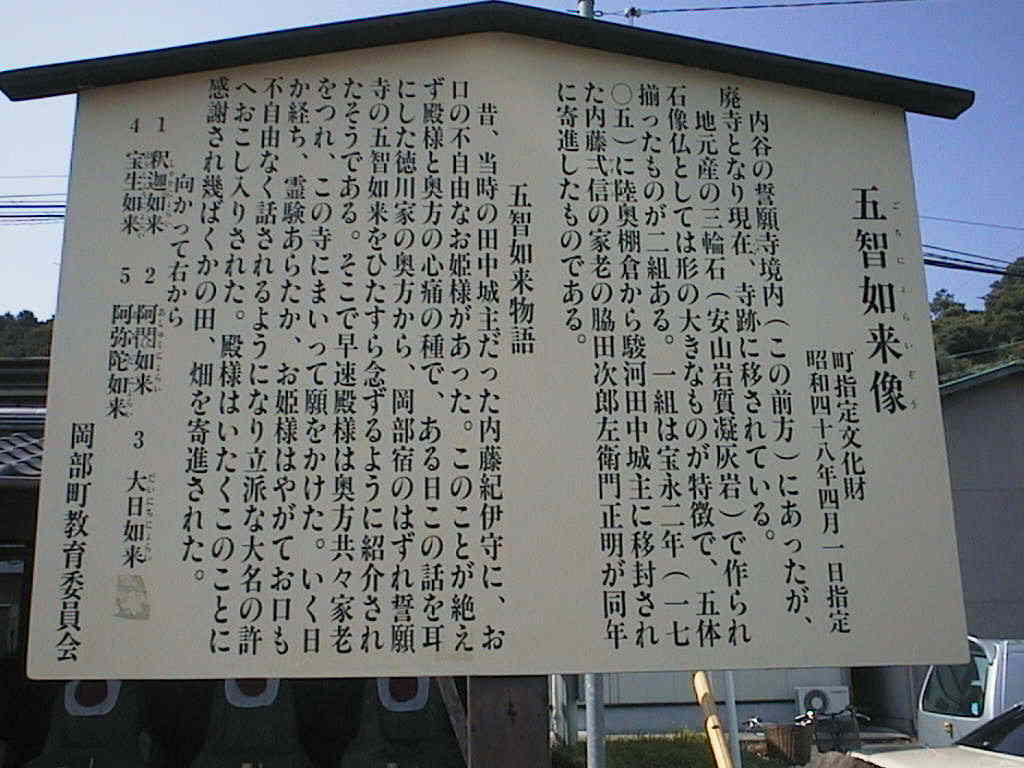 五智如来像
町指定文化財
昭和四十八年四月一日指定
内谷の誓願寺境内（この前方）にあったが、
廃寺となり現在、寺跡に移されている。
地元産の三輪石（安山岩質凝灰岩）で作られ
石像仏としては形の大きなものが特徴で、五体
揃ったものが二組ある。一組は宝永二年（一七
〇五）に陸奥棚倉から駿河田中城主に移封され
た内藤弌信の家老の脇田次郎左衛門正明が同年
に寄進したものである。
五智如来物語
昔、当時の田中城主だった内藤紀伊守に、お
口の不自由なお姫様があった。このことが絶え
ず殿様と奥方の心痛の種で、ある日この話を耳
にした徳川家の奥方から、岡部宿のはずれ誓願
寺の五智如来をひたすら念ずるように紹介され
たそうである。そこで早速殿様は奥方共々家老
をつれ、この寺にまいって願をかけた。いく日
か経ち、霊験あらたか、お姫様はやがてお口も
不自由なく話されるようになり立派な大名の許
へおこし入りされた。殿様はいたくこのことに
感謝され幾ばくかの田、畑を寄進された。
向かって右から
1 釈迦如来 2 阿閦如来 3 大日如来
4 宝生如来 5 阿弥陀如来
岡部町教育委員会